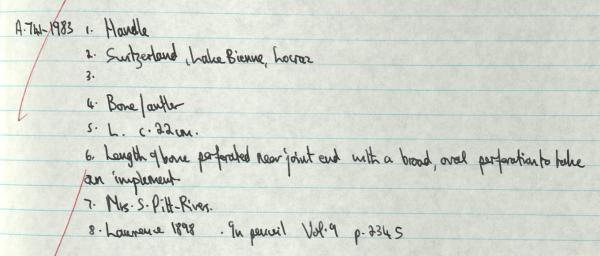 A.741-1983 1. Handle
2. Switzerland, Lake Bienne, Locraz
3.
4. Bone/antler
5. L. c. 22cm.
6. Length of bone perforated near joint end with a broad, oval perforation to take
an implement
7. Mrs. S. Pitt-Rivers.
8. Lawrence 1898 . In pencil Vol. 9 p. 2345